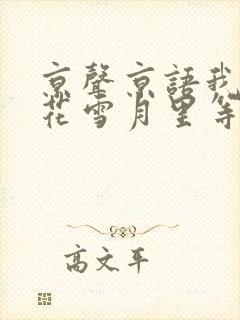 京聲京語我
花雪月里等
高文平